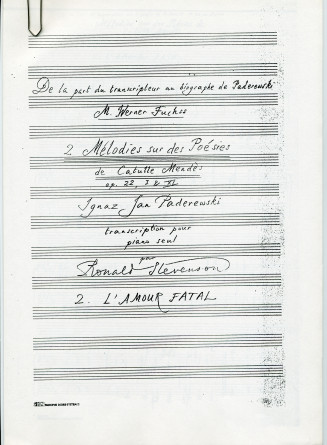 De la part du transcripteur au biographe de Paderewski
M. Werner Fuchss
2 Mélodies sur des Poésies
de Catulle Mendès
op. 22, I & XI
Ignaz Jan Paderewski
transcription pour
piano seul
par
Ronald Stevenson
2. L'AMOUR FATAL